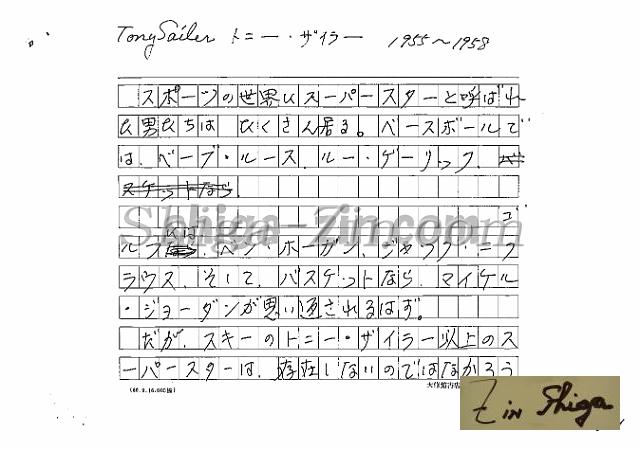 Tony Sailer トニー・ザイラー 1955～1958
スポーツの世界にスーパースターと呼ばれ
た男たちは たくさん居る。ベースボールで
は、ベーブ・ルース、ルー・ゲーリック、
スケットなら
ゴ
ルフには、ベン・ホーガン、ジャック・ニク
ラウス、そして、バスケットなら、マイケル
・ジョーダンが思い返されるはず。
だが、スキーのトニー・ザイラー以上のス
ーパースターは、存在しないのではなかろう
Shiga-Zin.com
Z in Shiga